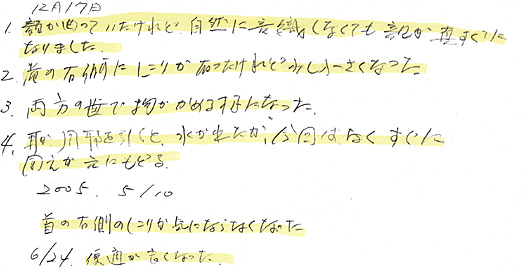 12月17日
1. 顔が曲っていたけれど自然に意識しなくても顔が真すぐに
なりました.
2. 首の右側にしこりがあったけれど少し小さくなった.
3. 両方の歯で物がかめる様になった.
4. 風邪を引くと、水が出たが、今回はなくすぐに
聞こえが元にもどる.
2005. 5/10
首の右側のしこりが気にならなくなった
6/24. 便通が良くなった.